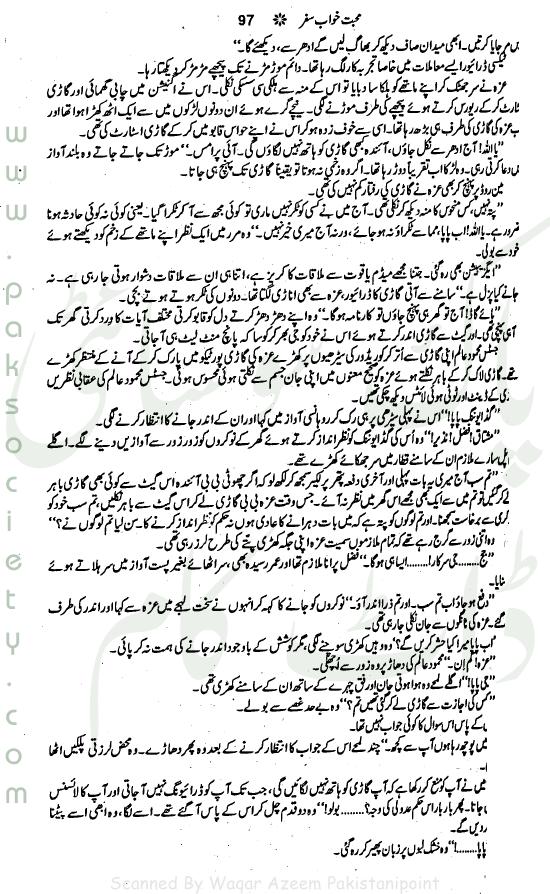 محبت خواب سفر ❋ 97
ں مر جایا کرتیں۔ ابھی میدان صاف دیکھ کر بھاگ لیں گے ادھر سے، دیکھئے گا۔"
ٹیکسی ڈرائیور ایسے معاملات میں خاصا تجربہ کار لگ رہا تھا۔ دائم موڑ مڑنے تک پیچھے مڑ مڑ کر دیکھتا رہا۔
عزہ نے سر جھٹک کر اپنے ماتھے کو ہلکا سا دبایا تو اس کے منہ سے ہلکی سی سسکی نکلی۔ اس نے اگنیشن میں چابی گھمائی اور گاڑی
ٹارٹ کر کے ریورس کرتے ہوئے پیچھے کی طرف موڑنے لگی۔ نیچے گرے ہوئے ان دونوں لڑکوں میں سے ایک اٹھ کھڑا ہوا تھا اور
ب عزہ کی گاڑی کی طرف ہی بڑھ رہا تھا۔ اسی سے خوف زدہ ہو کر اس نے اپنے حواس قابو میں کر کے گاڑی اسٹارٹ کی تھی۔
"یا اللہ! آج ادھر سے نکل جاؤں، آئندہ کبھی گاڑی کو ہاتھ نہیں لگاؤں گی۔ آئی پرامس۔" موڑ تک جاتے جاتے وہ بلند آواز
ں دعا کرتی رہی۔ وہ لڑکا اب تقریباً دوڑ رہا تھا۔ اگر وہ زخمی نہ ہوتا تو یقیناً گاڑی تک پہنچ ہی جاتا۔
مین روڈ پر پہنچ کر بھی عزہ نے گاڑی کی رفتار کم نہیں کی تھی۔
"پتہ نہیں، کس منحوس کا منہ دیکھ کر نکلی تھی۔ آج میں نے کسی کو ٹکر نہیں ماری تو کوئی مجھ سے آ کر ٹکرا گیا۔ یعنی کوئی نہ کوئی حادثہ ہونا
ضرور ہے۔ یا اللہ! اب پاپا، مما سے ٹکراؤ نہ ہو جائے، ورنہ آج میری خیر نہیں۔" وہ مرر میں ایک نظر اپنے ماتھے کے زخم کو دیکھتے ہوئے
خود سے بولی۔
"ایگزیبیشن بھی رہ گئی۔ جتنا مجھے میڈم یاقوت سے ملاقات کا کریز ہے، اتنا ہی ان سے ملاقات دشوار ہوتی جا رہی ہے۔ نہ
جانے کیا پزل ہے۔" سامنے سے آتی گاڑی کا ڈرائیور، عزہ سے بھی اناڑی لگتا تھا۔ دونوں کی ٹکر ہوتے ہوتے بچی۔
"ہائے گاڈ! آج تو گھر ہی پہنچ جاؤں تو کارنامہ ہو گا۔" وہ اپنے دھڑ دھڑ کرتے دل کو قابو کرتی مختلف آیات کا ورد کرتی گھر تک
آ ہی پہنچی تھی۔ اور گیٹ سے گاڑی اندر کرتے ہوئے اس نے خود کو جی بھر کر کوسا کہ پانچ منٹ لیٹ ہی آ جاتی۔
جسٹس محمود عالم اپنی گاڑی سے اتر کر کوریڈور کی سیڑھیوں پر کھڑے عزہ کی گاڑی پورٹیکو میں پارک کر کے آنے کے منتظر کھڑے
تھے۔ گاڑی لاک کر کے باہر نکلتے ہوئے عزہ کو صحیح معنوں میں اپنی جان جسم سے نکلتی ہوئی محسوس ہوئی۔ جسٹس محمود عالم کی عقابی نظریں
ی کے ڈینٹ اور ٹوٹی ہوئی لائٹس دیکھ چکی تھیں۔
"گڈ ایوننگ پاپا!" اس نے پہلی سیڑھی پر ہی رک کر روہانسی آواز میں کہا اور ان کے اندر جانے کا انتظار کرنے لگی۔
"مشتاق! فضل! نذیرا!" وہ اس کی گڈ ایوننگ کو نظر انداز کرتے ہوئے گھر کے نوکروں کو زور زور سے آوازیں دینے لگے۔ اگلے
پل سارے ملازم ان کے سامنے قطار میں سر جھکائے کھڑے تھے۔
"تم سب آج میری یہ بات پہلی اور آخری دفعہ پتھر پر لکیر سمجھ کر لکھ لو کہ اگر چھوٹی بی بی آئندہ اس گیٹ سے کوئی بھی گاڑی باہر
لے کر گئیں تو تم میں سے ایک بھی مجھے اس گھر میں نظر نہ آئے۔ جس وقت عزہ بی بی گاڑی لے کر اس گیٹ سے باہر نکلیں، تم سب خود کو
کری سے برخاست سمجھنا۔ اور تم لوگوں کو پتہ ہے کہ میں بات دہرانے کا عادی ہوں نہ حکم کو نظر انداز کرنے کا۔ سن لیا تم لوگوں نے؟"
وہ اتنی زور سے گرج رہے تھے کہ تمام ملازموں سمیت عزہ بھی اپنی جگہ کھڑی پتے کی طرح لرز رہی تھی۔
"جج........ جی سرکار!........ ایسا ہی ہو گا۔" فضل پرانا ملازم تھا اور عمر رسیدہ بھی، سر اٹھائے بغیر پست آواز میں سر ہلاتے ہوئے
نایا۔
"دفع ہو جاؤ اب تم سب۔ اور تم ذرا اندر آؤ۔" نوکروں کو جانے کا کہہ کر انہوں نے سخت لہجے میں عزہ سے کہا اور اندر کی طرف
گئے۔ عزہ کی ٹانگوں سے جان نکلی جا رہی تھی۔
'اب پاپا میرا کیا حشر کریں گے؟' وہ وہیں کھڑی سوچنے لگی، مگر کوشش کے باوجود اندر جانے کی ہمت نہ کر پائی۔
"عزہ! کم اِن۔" محمود عالم کی دھاڑ پر وہ زور سے اُچھلی۔
"جی پاپا!" اگلے لمحے وہ ہوا ہوتی جان اور فق چہرے کے ساتھ ان کے سامنے کھڑی تھی۔
"کس کی اجازت سے گاڑی لے کر گئی تھیں تم؟" وہ بے حد غصے سے بولے۔
کے پاس اس سوال کا کوئی جواب نہیں تھا۔
میں پوچھ رہا ہوں آپ سے کچھ۔" چند لمحے اس کے جواب کا انتظار کرنے کے بعد وہ پھر دھاڑے۔ وہ محض لرزتی پلکیں اٹھا
۔
میں نے آپ کو منع کر رکھا ہے کہ آپ گاڑی کو ہاتھ نہیں لگائیں گی، جب تک آپ کو ڈرائیونگ نہیں آ جاتی اور آپ کا لائسنس
جاتا۔ پھر بار بار اس حکم عدولی کی وجہ؟........ بولو!" وہ دو قدم چل کر اس کے پاس آ گئے تھے۔ اسے لگا، وہ ابھی اسے پیٹنا
ردیں گے۔
پاپا........!" وہ خشک لبوں پر زبان پھیر کر رہ گئی۔
www.paksociety.com
Scanned By Waqar Azeem Pakistanipoint